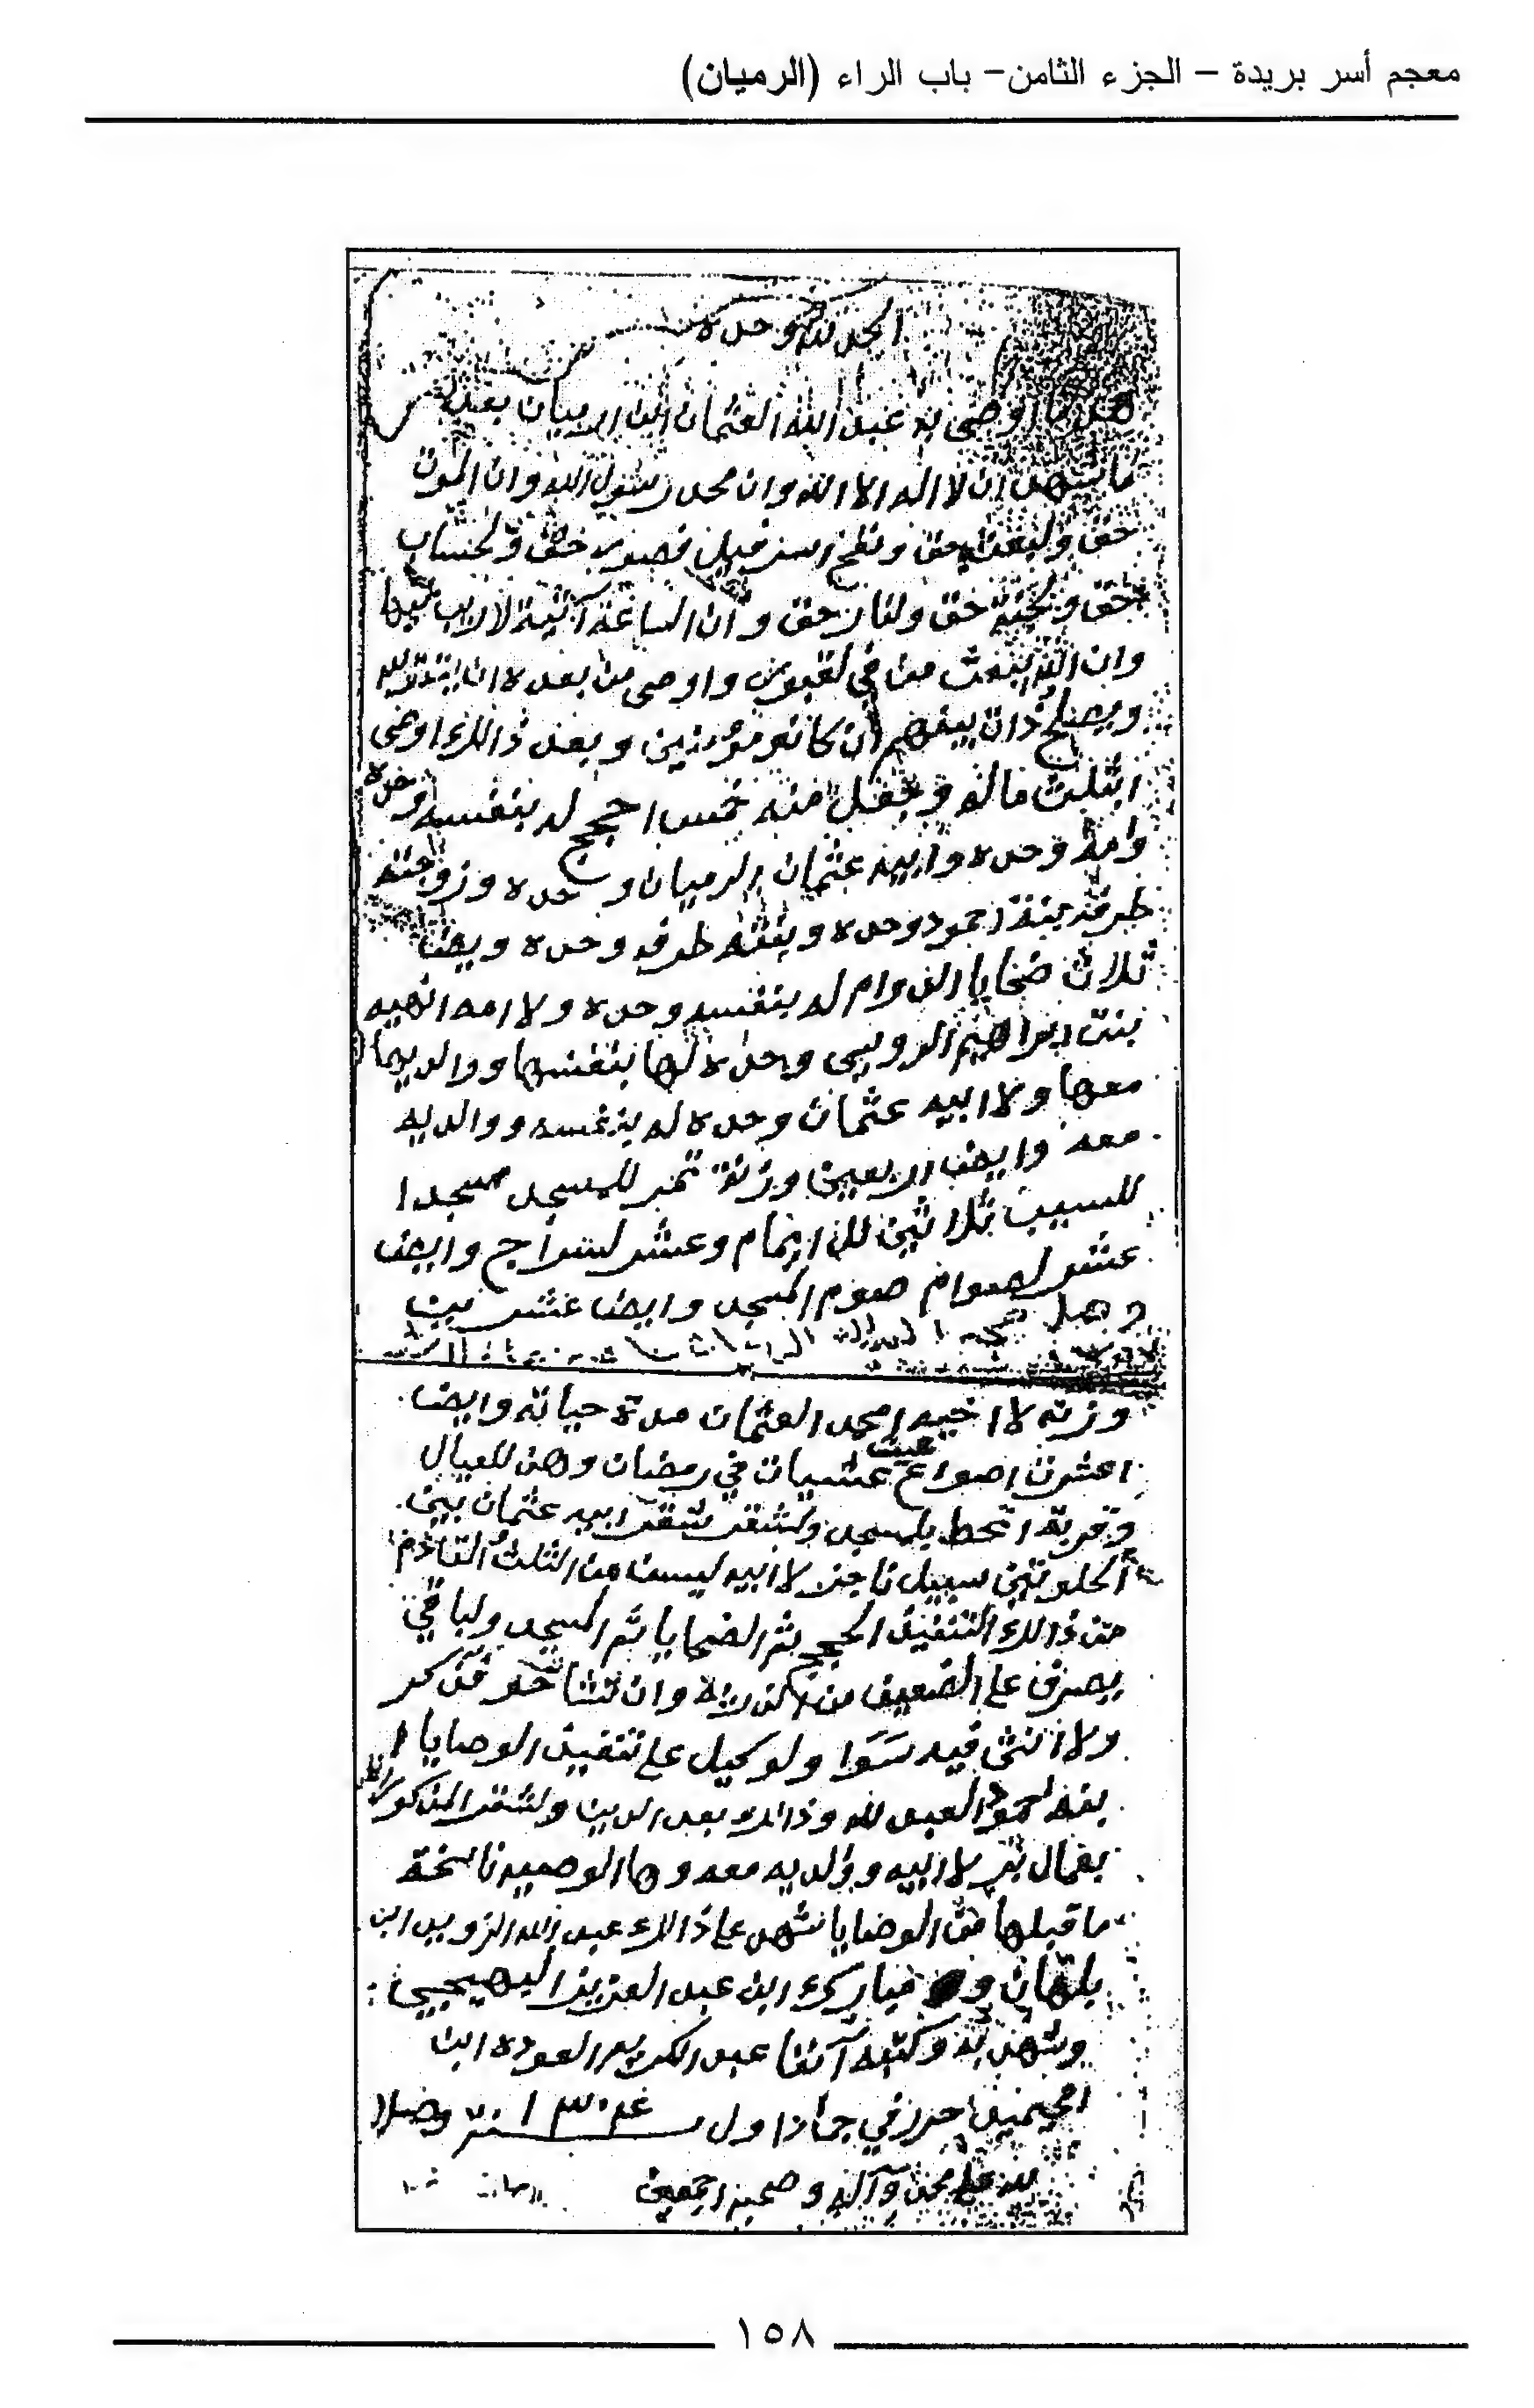 معجم أسر بريدة – الجزء الثامن– باب الراء (الرميان)
الحمد لله وحده
هذا ما اوصى به عبد الله العثمان ابن ارميان بعد
ما يشهد ان لا اله الا الله وان محمد رسول الله وان الموت
حق ولبعث حق ونفخ اسرفيل فصور حق ولحساب
حق ولجنة حق ولنار حق وان الساعة آتية لا ريب فيها
وان الله يبعث من في لقبور واوصى من بعده ان
ويصلح ذات بينهم ان كانو مؤمنين وبعد ذالك اوصى
ابثلث ماله وجعل منه خمس احجج له بنفسه وحده
وامه وحده وابيه عثمان الرميان وحده وزوجته
طرفه بنة احمود وحده وبنته طرفه وحده ويضا
ثلاث ضحايا الدوام له بنفسه وحده ولا امه اثهيه
بنت ابراهيم الرويسى وحده لها بنفسها ووالديها
معها ولا ابيه عثمان وحده له بنفسه ووالديه
معه وايضا اربعين وزنة تمر للمسجد مسجد ا
ثلاثين للا امام وعشر لسراج وايضا
عشر لصوام صوم المسجد وايضا عشر
وزنه لا اخيه امحمد العثمان مدة حياته وايضا
اعشرت اصواع عيش عشيات في رمضان وهن للعيال
وقربة اتحط بلمسجد ولشقر شقر ابيه عثمان بين
سبيل ناجز لا ابيه ليست من الثلث القادم
من ذالك التنفيذ الحجج ثم الضحايا ثم المسجد ولباقي
يصرف على الضعيف من الذريه وان فذكر
ولا انثى فيه سوا ولوكيل على تنفيذ الوصايا
العبد لله وذالك بعد الدين ولشقر المذكور
لا ابيه ووالديه معه وها الوصيه ناسخة
ما قبلها من الوصايا شهد على ذالك عبد الله الزويد ابن
و مبارك ابن عبد العزيز
وشهد به وكتبه آنفا عبد الكريم العوده ابن
امحيميد احرر في جماد اول سنة ١٣٠٤ وصلا
لله على محمد وآله وصحبه اجمعين
١٥٨